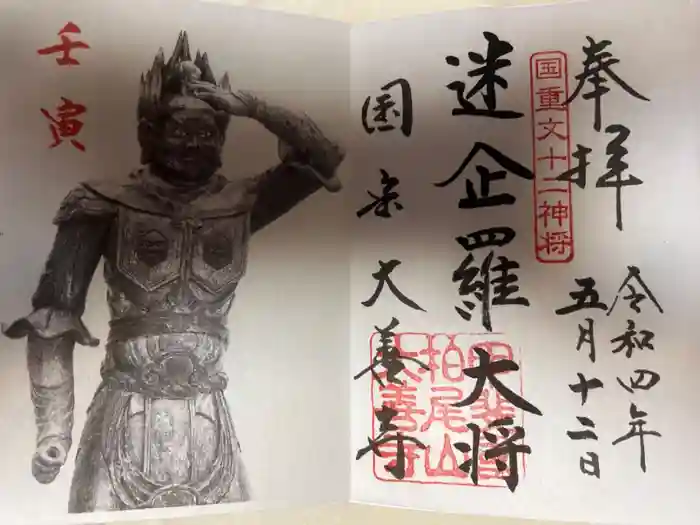 奉拝
令和四年
五月十二日
国重文十二神将
迷企羅大将
国宗大善寺
甲斐国
柏尾山
大善寺
壬寅